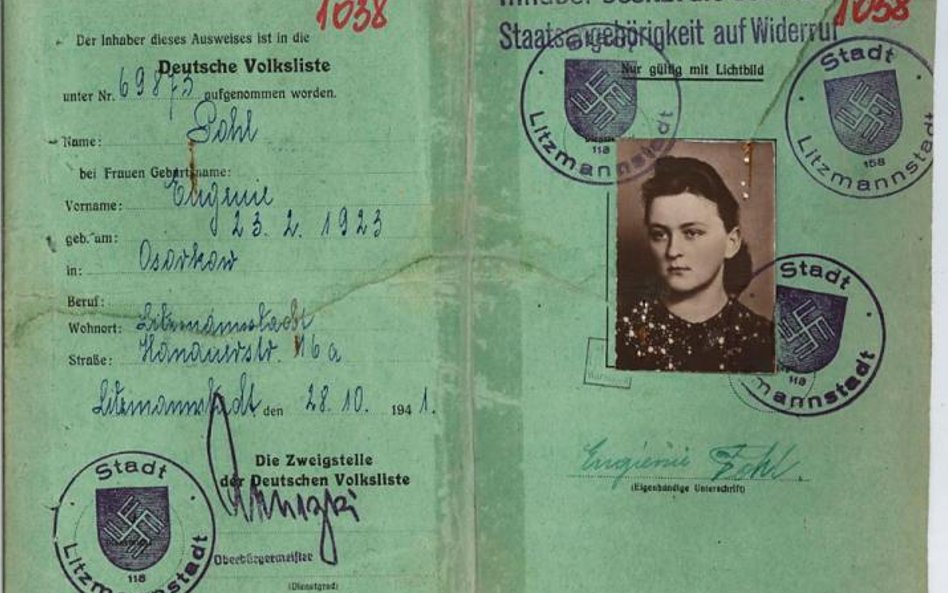 1638
Der Inhaber dieses Ausweises ist in die
Deutsche Volksliste
unter Nr. 69873 aufgenommen worden.
Name: Pohl
bei Frauen Geburtsname:
Vorname: Eugenie
geb. am: 23. 2. 1923
in: Osorkow
Beruf:
Wohnort: Litzmannstadt
Straße: Hanauerstr. 116a
Litzmannstadt den 28. 10. 1941.
Die Zweigstelle
der Deutschen Volksliste
Oberbürgermeister
(Dienstgrad)
Stadt
Litzmannstadt
118
1638
Staatsangehörigkeit auf Widerruf
Nur gültig mit Lichtbild
Stadt
Litzmannstadt
118
Stadt
Litzmannstadt
158
Stadt
mannstadt
118
Eugienie Pohl.
(Eigenhändige Unterschrift)